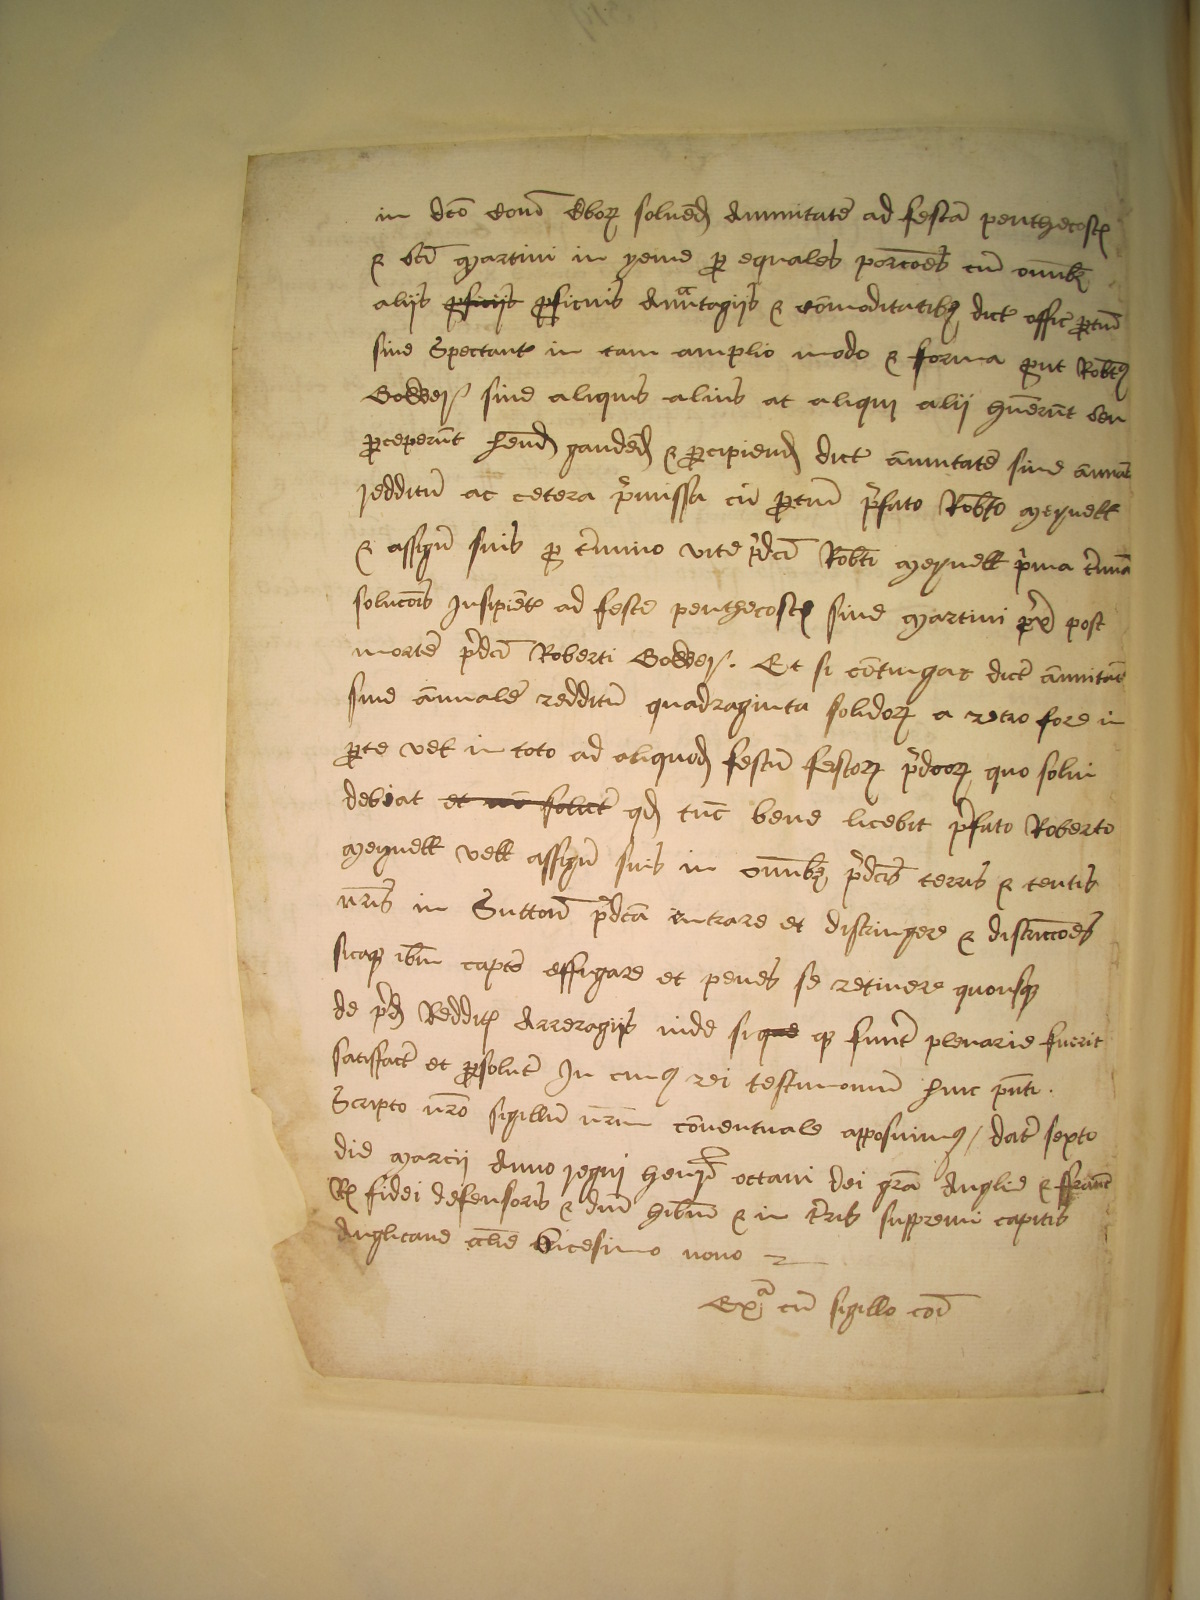 in dc̄o Com̄ Ebor̛ soluēd annuitatē ad festa penthecost̛
& sc̄i Martini in yeme p equales porcōes cū om̄ibȝ
aliis pficiis pficuis auantagiis & cōmoditatibȝ dict offic ptin̄
siue spectant in tam amplio modo & forma put Robt̄ꝰ
siue aliquis alius at aliqui alii huērūt seu
pceperūt hend gaudēd & pcipiend dict annuitatē siue annāl
redditū ac cetera p̄missa cū ptin̄ p̄fato Robto Meynell
& assign̄ suis p t̄mino vite p̄dc̄i Robti Meynell p̄ma t̄mīo
solucōis Insipiēt ad feste penthecoste siue Martini px̄ post
mortē p̄dc̄i Roberti . Et si cōtingat dict annuitatē
siue annualē redditū quadraginta solidor̛ a retro fore in
pte vel in toto ad aliquod festū festor̛ p̄dcor̛ quo solui
debiat et nō solut̄ qd tūc bene licebit p̄fato Roberto
Meynell vell assign̄ suis in om̄ibȝ p̄dc̄is terris & tentis
nr̄is in Sutton̄ p̄dc̄a intrare et distringere & districcōes
sicqȝ ibm̄ captas effugare et penes se retinere quousqȝ
de p̄d Reddit̛ Arreragiis inde sique qȝ funt plenarie fuerit
satisfact̄ et psolut̄ In cuiꝰ rei testimoniū huic pn̄ti
Scripto nr̄o sigillū nr̄m cōuentuale apposuimꝰ / dat̄ sexto
die Marcii Anno regni henr̄ octaui dei gra Anglie & ffranc̄
Rx̛ fidei defensoris & dn̄i hibn̄ & in t̄ris suppremi capitis
Anglicane eclīe vicesimo nono
Exᵃ cū sigillo coī